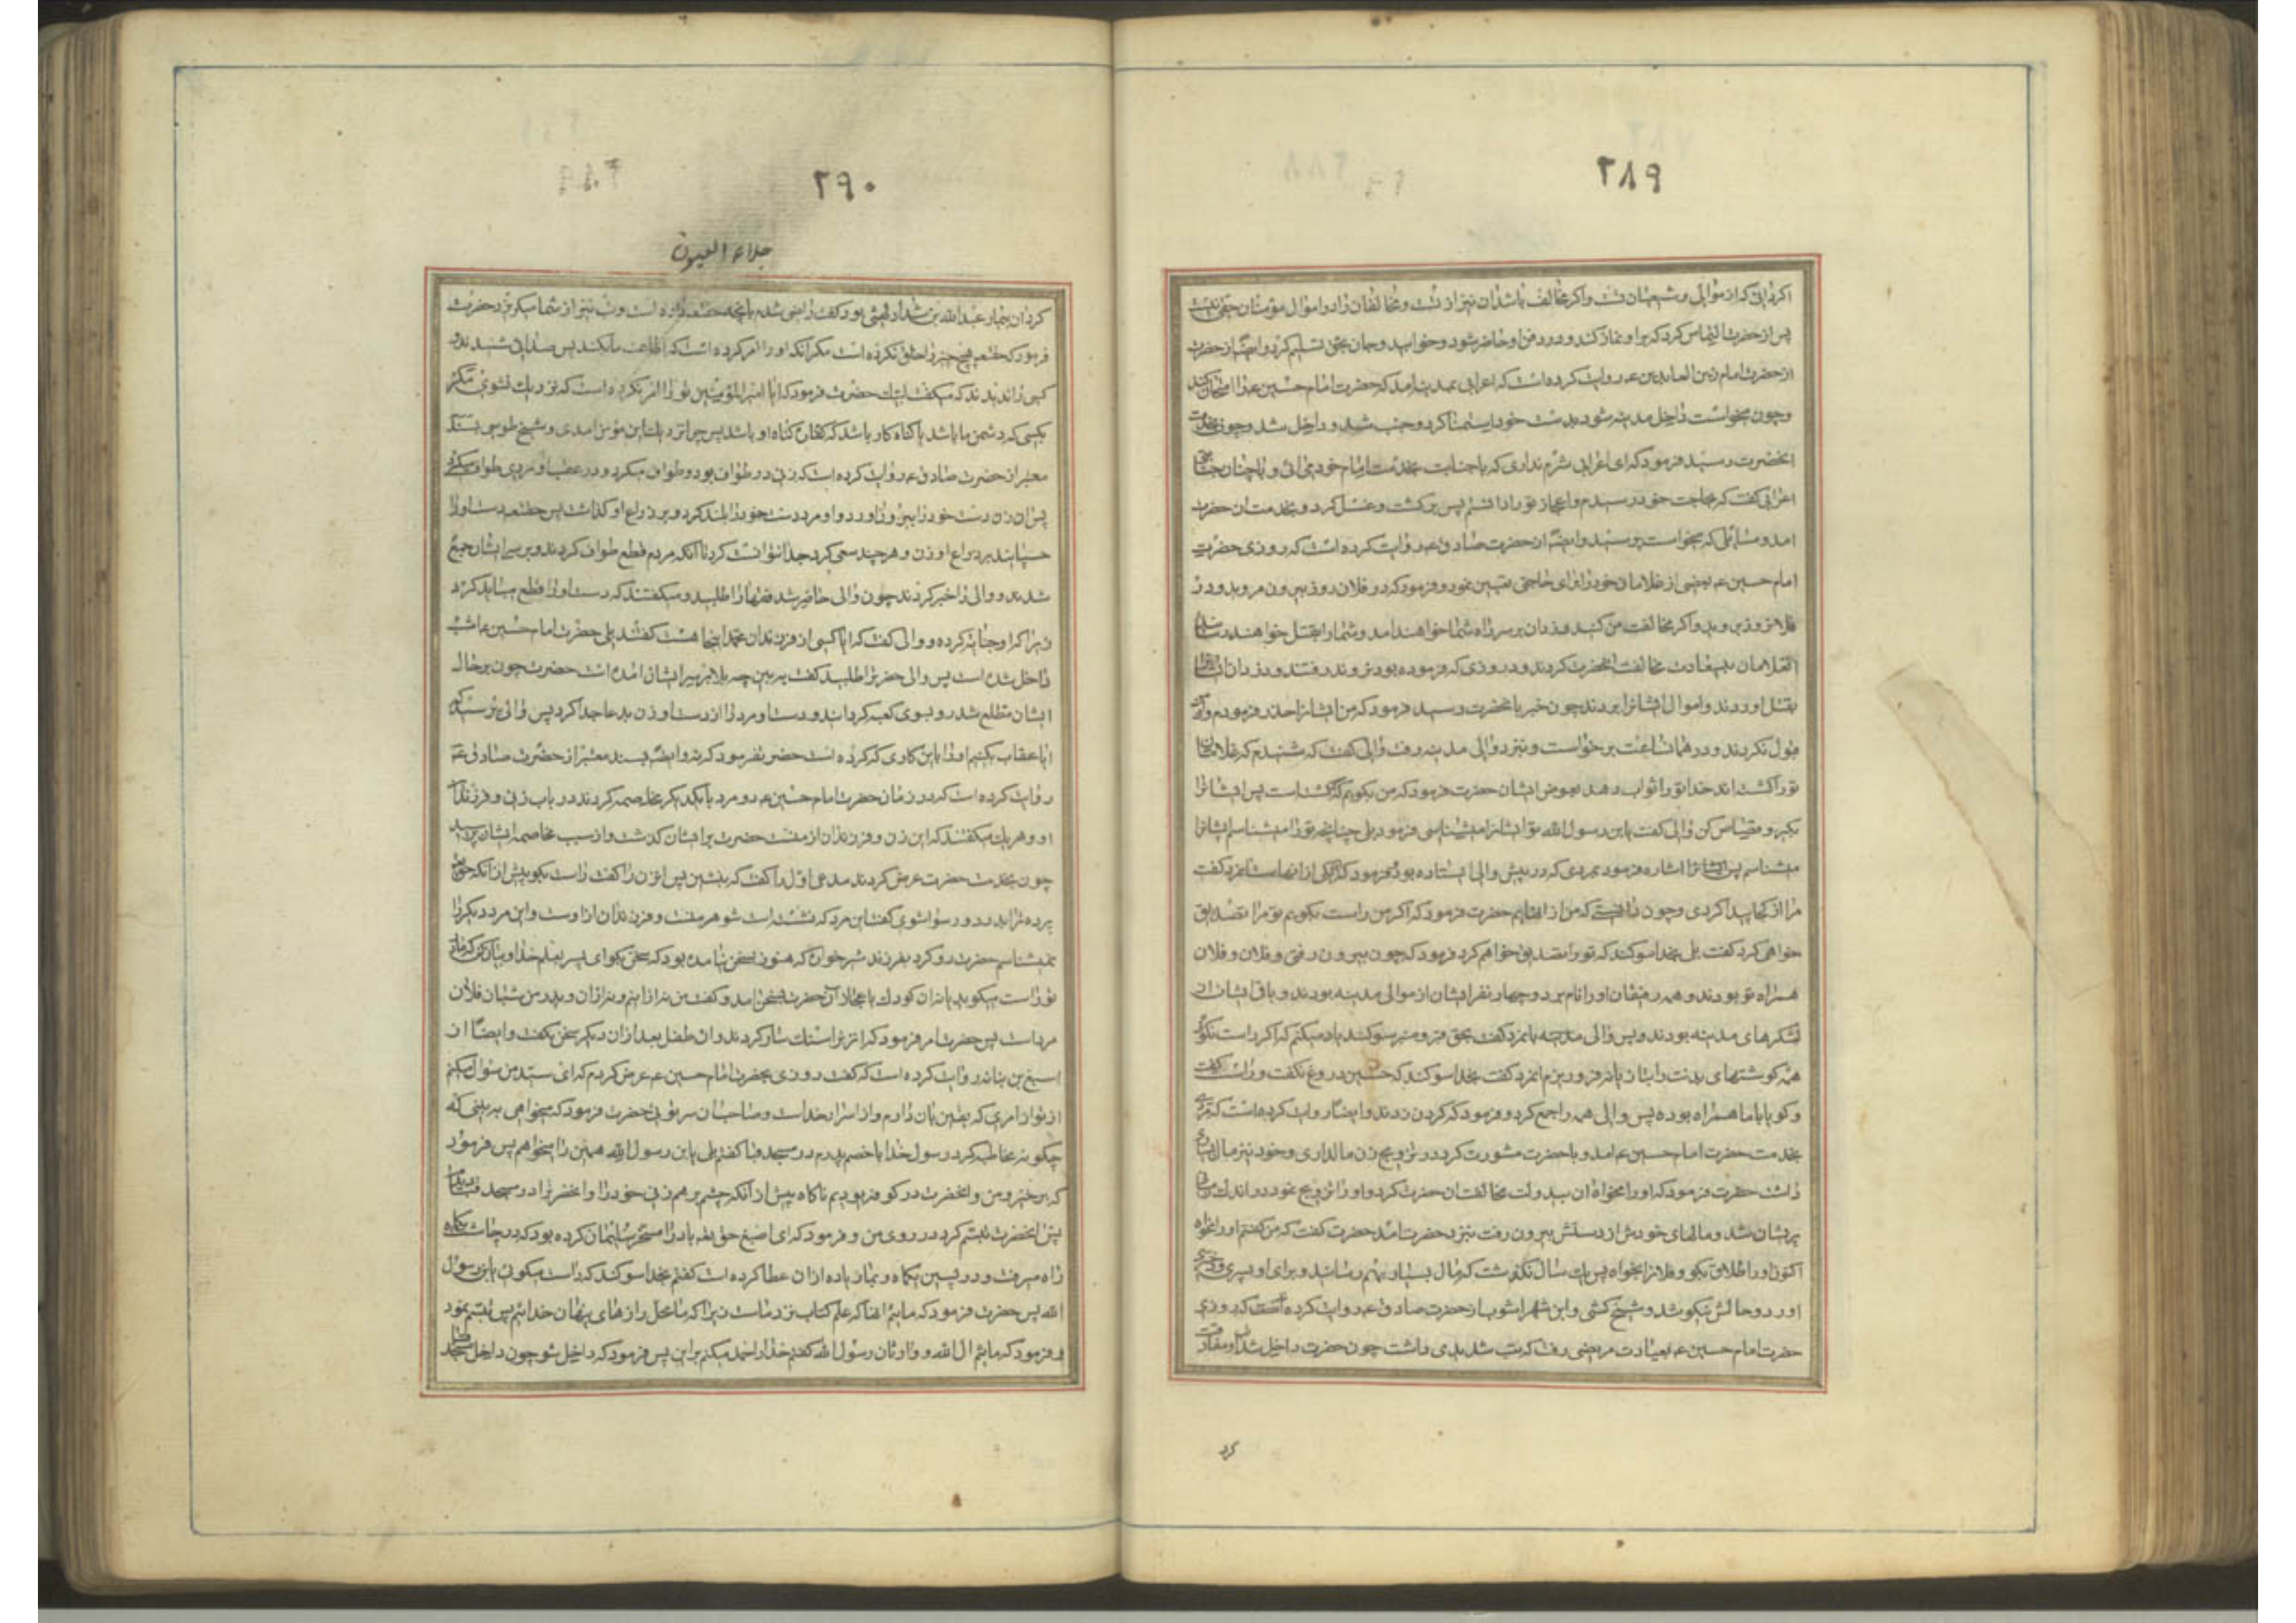 ۲۸۹
اگر دانی که از موالی و شیعیان تست و اگر مخالف باشد آن نیز از تست و مخالفان را در اموال مؤمنان حقی نیست
پس از حضرت التماس کرد که بر او نماز کند و در دفن او حاضر شود و خوابید و جان بحق تسلیم کرد و ایضا از حضرت
از حضرت امام زین العابدین ع روایت کرده است که اعرابی بمدینه امد که حضرت امام حسین ع را امتحان کند
و چون میخواست داخل مدینه شود بدست خود استمنا کرد و جنب شد و داخل شد و چون بخدمت
انحضرت رسید فرمود که ای اعرابی شرم نداری که با جنابت بخدمت امام خود می ائی و باچنان جنابتی
اعرابی گفت که بحاجت خود رسیدم و اعجاز تو را دانستم پس برگشت و غسل کرد و بخدمت ان حضرت
امد و مسائلی که میخواست پرسید و ایضا از حضرت صادق ع روایت کرده است که روزی حضرت
امام حسین ع بعضی از غلامان خود را برای حاجتی تعیین نمود و فرمود که در فلان روز بیرون مروید و در
فلان روز بروید و اگر مخالفت من کنید دزدان بر سر راه شما خواهند امد و شما را بقتل خواهند رسانید
الغلامان مخالفت انحضرت کردند و در روزی که فرموده بود نروند رفتند و دزدان ایشانرا
بقتل اوردند و اموال ایشانرا بردند چون خبر بانحضرت رسید فرمود که من ایشانرا حذر فرمودم و از من
قبول نکردند و در همان ساعت برخواست و بنزد والی مدینه رفت والی گفت که شنیدم که غلامان
تو را کشته اند خدا تو را ثواب دهد بعوض ایشان حضرت فرمود که من بگویم که کشته است پس ایشانرا
بگیر و قصاص کن والی گفت یابن رسول الله تو ایشانرا میشناسی فرمود بلی چنانچه تو را میشناسم ایشانرا
میشناسم پس اشاره فرمود بمردی که در پیش والی ایستاده بود فرمود که یکی از انهاست انمرد گفت
مرا از کجا پیدا کردی و چون دانستی که من از انهایم حضرت فرمود که اگر من راست بگویم تو مرا تصدیق
خواهی کرد گفت بلی بخدا سوگند که تو را تصدیق خواهم کرد فرمود که چون بیرون رفتی و فلان و فلان
همراه تو بودند و همه رفیقان او را نام برد و چهار نفر ایشان از موالی مدینه بودند و باقی ایشان از
لشکرهای مدینه بودند و پس والی مدینه بانمرد گفت بحق قبر و منبر سوگند یاد میکنم که اگر راست نگوئی
همه گوشتهای بدنت را بتازیانه فرو ریزم انمرد گفت بخدا سوگند که حسین دروغ نگفت و راست گفت
و گویا با ما همراه بوده پس والی همه را جمع کرد و فرمود که گردن زدند و ایضا روایت کرده است که مردی
بخدمت حضرت امام حسین ع امد و با حضرت مشورت کرد در تزویج زن مالداری و خود نیز مال بسیاری
داشت حضرت فرمود که او را مخواه ان بیدولت مخالفت ان حضرت کرد و او را تزویج نمود در اندک زمانی
پریشان شد و مالهای خودش از دستش بیرون رفت بنزد حضرت امد حضرت گفت که من گفتم او را مخواه
اکنون او را طلاق بگو و فلانرا بخواه پس یک سال نگذشت که مال بسیار بهم رسانید و برای او پسری و دختری
اورد و حالش نیکو شد و شیخ کشی و ابن شهراشوب از حضرت صادق ع روایت کرده است که روزی
حضرت امام حسین ع بعیادت مریضی رفت که تب شدیدی داشت چون حضرت داخل شد او مفارقت
کرد
۲۹۰
جلاء العیون
کرد ان بیمار عبد الله بن شداد لیثی بود گفت راضی شدم بانچه داده است و تب نیز از شما میگریزد حضرت
فرمود که هیچ چیز را خلق نکرده است مگر انکه او را امر کرده است که اطاعت ما بکند پس صدائی شنیدند
کسی را ندیدند که میگفت لبیک حضرت فرمود که ایا امیر المؤمنین تو را امر نکرده است که نزدیک نشوی مگر
بکسی که دشمن ما باشد یا گناه کار باشد که کفاره گناه او باشد پس چرا نزدیک این مؤمن امدی و شیخ طوسی بسند
معتبر از حضرت صادق ع روایت کرده است که زنی در طواف بود و طواف میکرد و در عقب او مردی طواف میکرد
پس ان زن دست خود را بیرون اورد و او مرد دست خود را بلند کرد و بر ذراع او گذاشت پس حقتعالی دست او را
چسپانید بر ذراع او زن و هر چند سعی کرد جدا نتوانست کرد تا انکه مردم قطع طواف کردند و بر سر ایشان جمع
شدند و والی را خبر کردند چون والی حاضر شد فقها را طلبید و میگفتند که دست او را قطع میباید کرد
زیرا که او جنایت کرده و والی گفت که ایا کسی از فرزندان محمد اینجا هست گفتند بلی حضرت امام حسین ع امشب
داخل شده است پس والی حضرترا طلبید گفت به بین چه بلا بر سر ایشان امده است حضرت چون بر حال
ایشان مطلع شد رو بسوی کعبه گردانید و دست او مرد را از دست او زن بدعا جدا کرد پس والی پرسید که
ایا عقاب بکنیم او را باین کاری که کرده است حضرت فرمود که نه و ایضا بسند معتبر از حضرت صادق ع
روایت کرده است که در زمان حضرت امام حسین ع دو مرد با یکدیگر مخاصمه کردند در باب زنی و فرزند ان
او و هر یک میگفتند که این زن و فرزندان از منست حضرت بر ایشان گذشت و از سبب مخاصمه ایشان پرسید
چون بخدمت حضرت عرض کردند مدعی اول را گفت که بنشین پس ان زن را گفت راست بگو پیش از انکه حق تعالی
پرده ترا بدرد و رسوا شوی گفت این مرد که نشسته است شوهر منست و فرزندان از اوست و این مرد دیگر را
نمیشناسم حضرت رو کرد بفرزند شیرخواره که هنوز بسخن نیامده بود که سخن بگو ای پسر بعلم خدا و بیان کن که مادر
تو راست میگوید یا نه ان کودک باعجاز ان حضرت بسخن امد و گفت من نه از اینم و نه از ان و پدر من شبان فلان
مرد است پس حضرت امر فرمود که ان زنرا سنگسار کردند و ان طفل بعد از ان دیگر سخن نگفت و ایضا از
اصبغ بن نباته روایت کرده است که گفت روزی بحضرت امام حسین ع عرض کردم که ای سید من سؤال میکنم
از تو از امری که یقین بان دارم و از اسرار خداست و صاحب ان سر توئی حضرت فرمود که میخواهی به بینی که
چگونه مخاطبه کرد رسول خدا با خصم پدرم در مسجد قبا گفتم بلی یابن رسول الله همین را میخواهم پس فرمود
که برخیز و من و انحضرت در کوفه بودیم ناگاه پیش از انکه چشم بر هم زنی خود را و انحضرترا در مسجد قبا دیدم
پس انحضرت تبسم کرد در روی من و فرمود که ای اصبغ حق تعالی باد را مسخر سلیمان کرده بود که در چاشت یکماه
راه میرفت و در پسین یکماه و بما زیاده از ان عطا کرده است گفتم بخدا سوگند که راست میگوئی یابن رسول
الله پس حضرت فرمود که مائیم انها که علم کتاب نزد ماست زیرا که ما محل رازهای پنهان خدائیم پس تبسم نمود
و فرمود که مائیم ال الله و وارثان رسول الله گفتم خدا را حمد میکنم بر این پس فرمود که داخل شو چون داخل مسجد